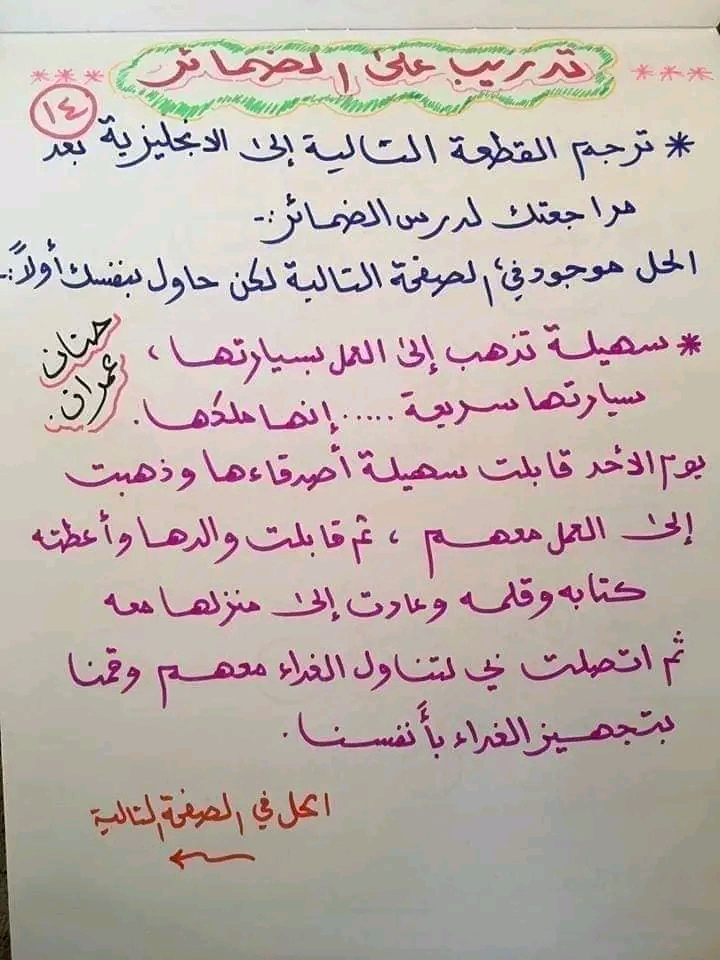 *** تدريب على الضمائر ***
١٤
* ترجم القطعة التالية إلى الانجليزية بعد
مراجعتك لدرس الضمائر :-
الحل موجود في الصفحة التالية لكن حاول بنفسك أولاً :-
حنان
عمران
* سهيلة تذهب إلى العمل بسيارتها ،
سيارتها سريعة ..... إنها ملكها.
يوم الأحد قابلت سهيلة أصدقاءها وذهبت
إلى العمل معهم ، ثم قابلت والدها وأعطته
كتابه وقلمه وعادت إلى منزلها معه
ثم اتصلت بي لتناول الغداء معهم وقمنا
بتجهيز الغداء بأنفسنا.
الحل في الصفحة التالية